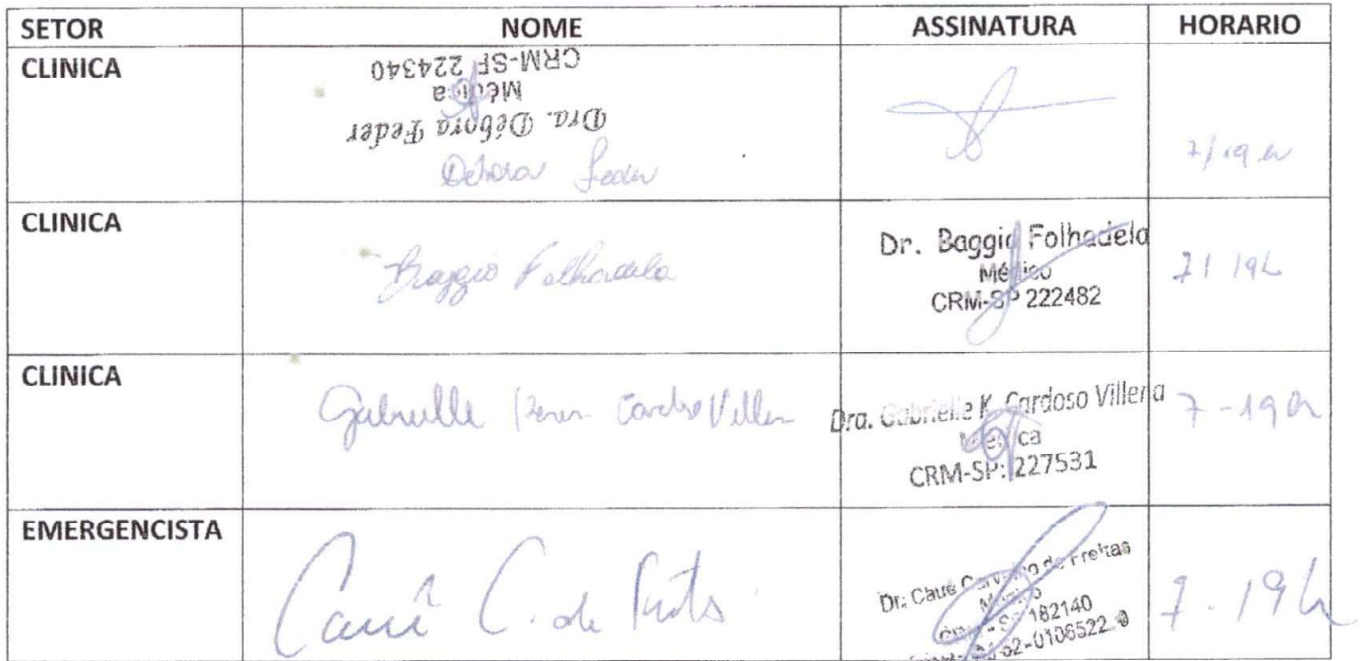 SETOR NOME ASSINATURA HORARIO
CLINICA
Dra. Débora Feder
Médica
CRM-SP 224340
Debora Feder
7/19h
CLINICA
Baggio Folhadela
Dr. Baggio Folhadela
Médico
CRM-SP 222482
7/19h
CLINICA
Gabrielle Cardoso Villena
Dra. Gabrielle K. Cardoso Villena
Médica
CRM-SP: 227531
7-19h
EMERGENCISTA
Cauê C. de Freitas
Dr. Cauê Carvalho de Freitas
Médico
182140
52-0106522-9
7-19h